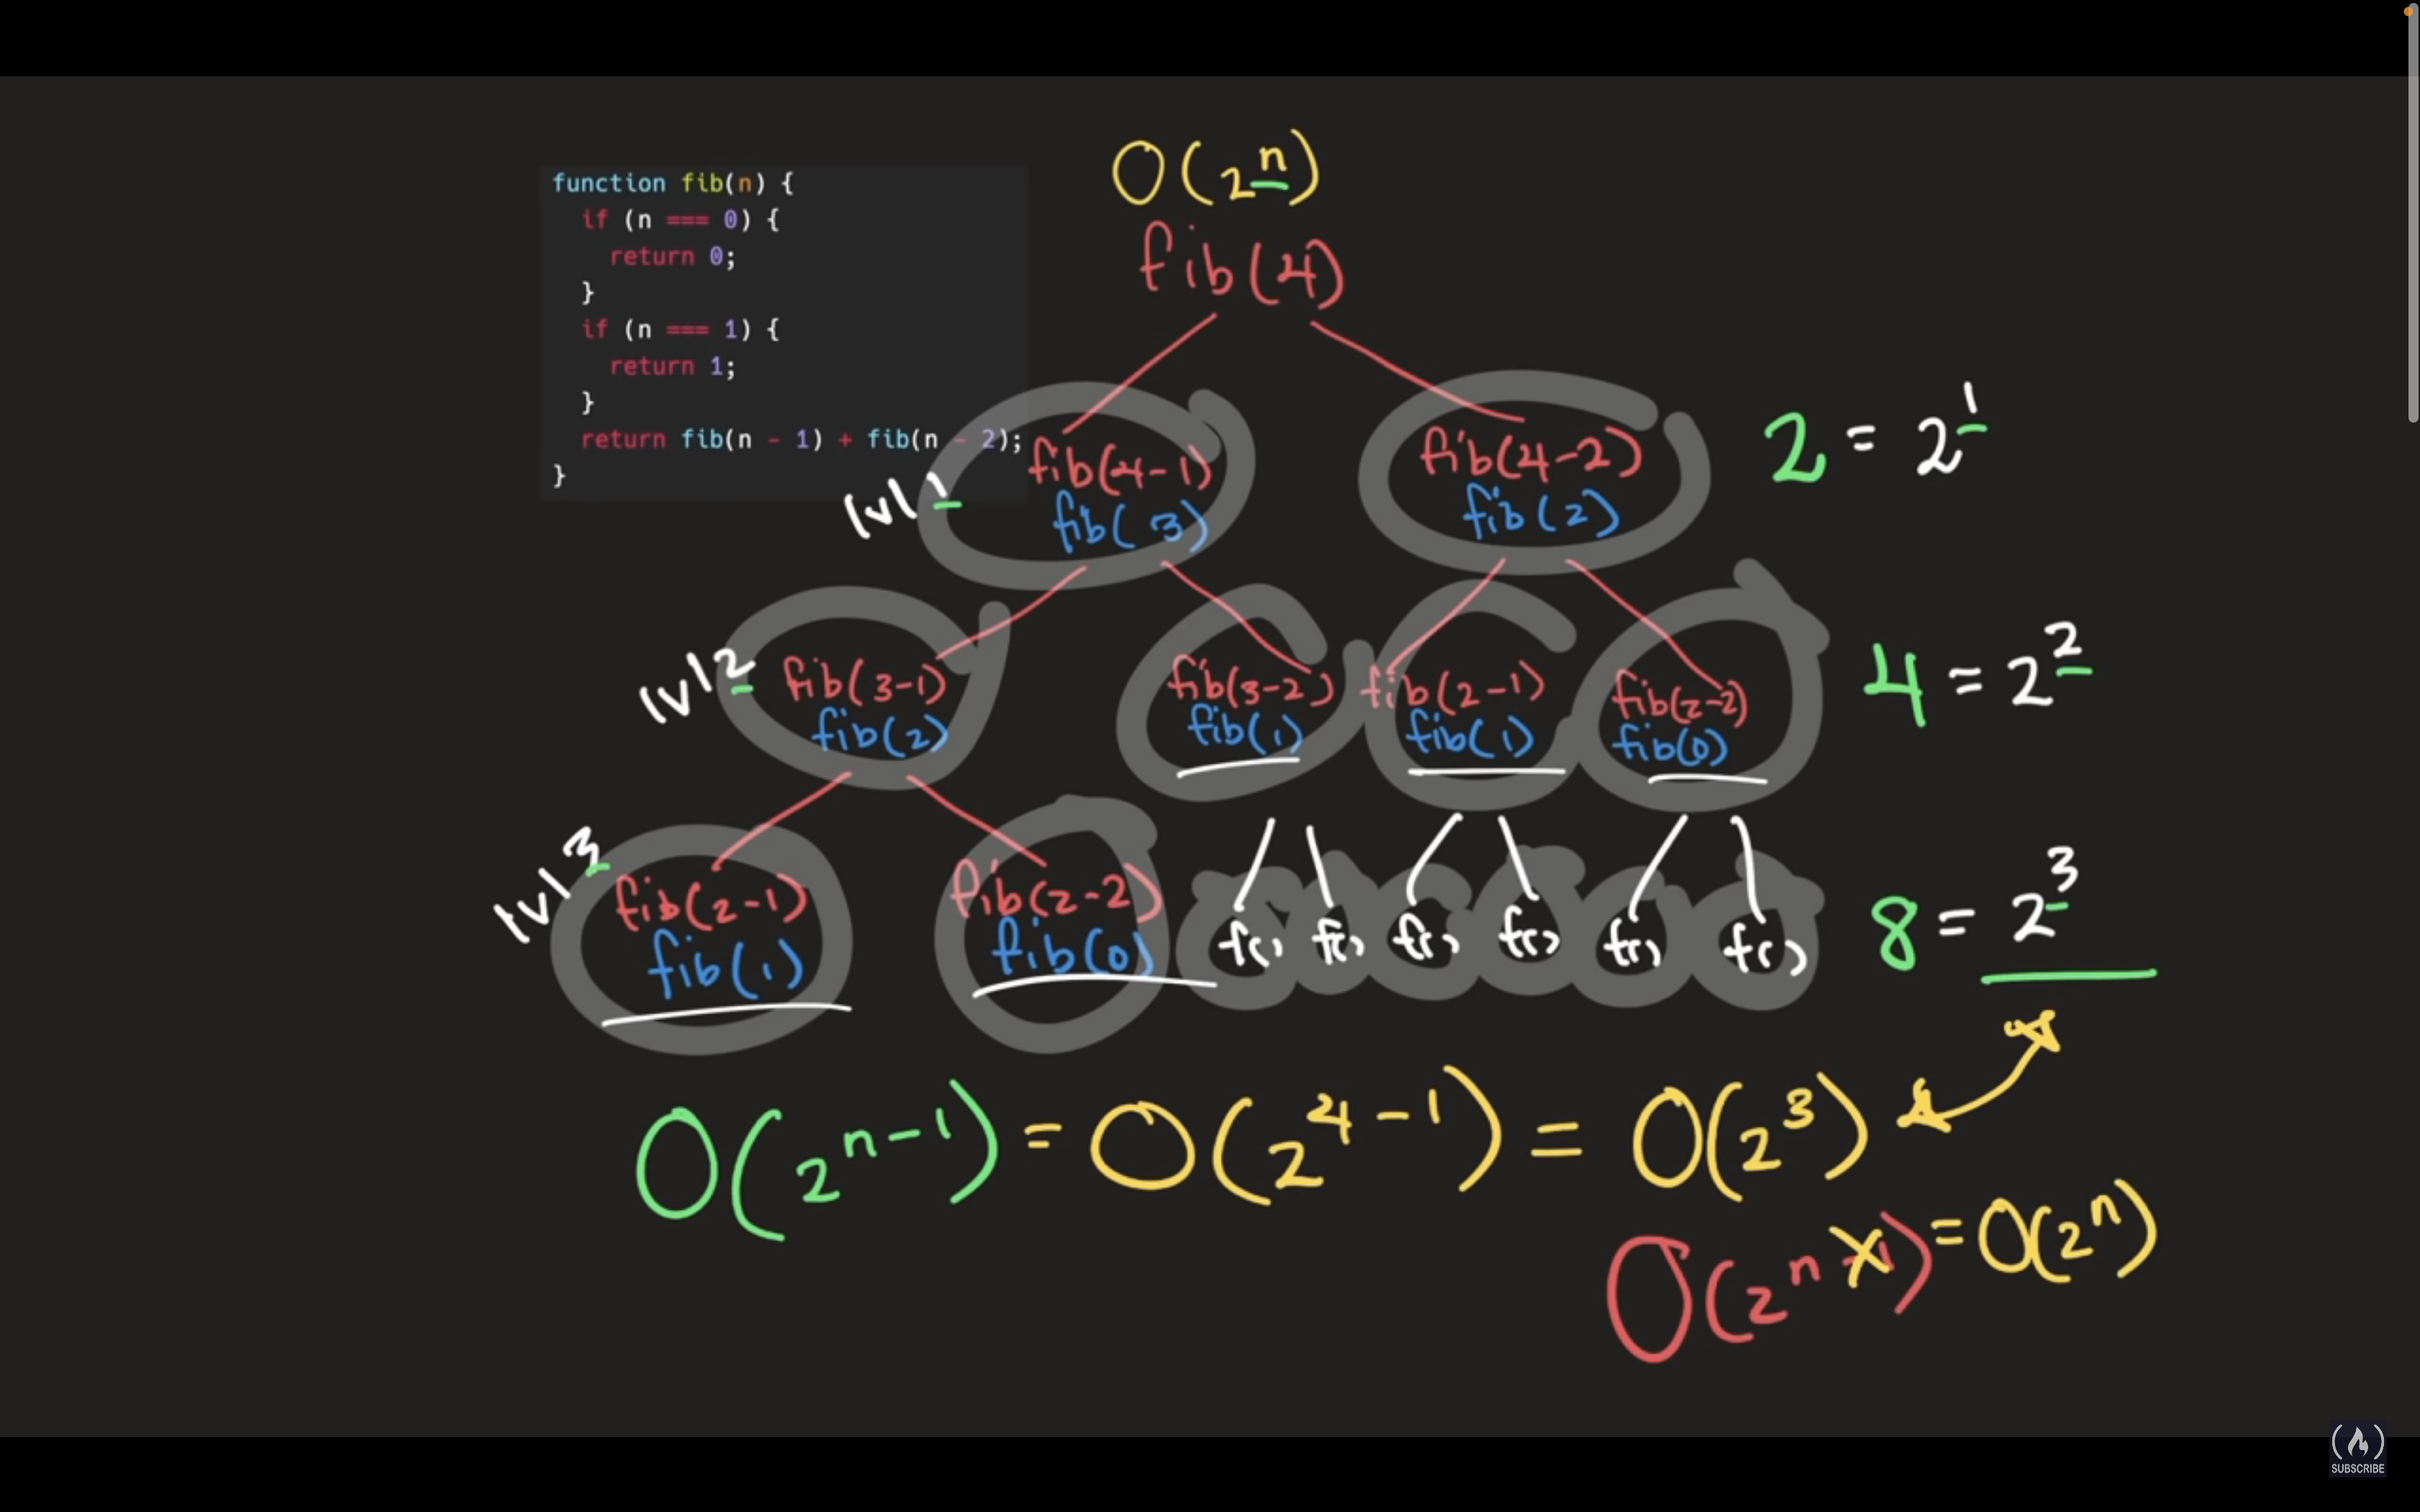 O(2^n)
function fib(n) {
if (n === 0) {
return 0;
}
if (n === 1) {
return 1;
}
return fib(n - 1) + fib(n - 2);
}
fib(4)
lvl 1
fib(4-1)
fib(3)
fib(4-2)
fib(2)
2 = 2^1
lvl 2
fib(3-1)
fib(2)
fib(3-2)
fib(1)
fib(2-1)
fib(1)
fib(2-2)
fib(0)
4 = 2^2
lvl 3
fib(2-1)
fib(1)
fib(2-2)
fib(0)
f() f() f() f() f() f()
8 = 2^3
O(2^n-1) = O(2^4-1) = O(2^3)
O(2^n-1) = O(2^n)
SUBSCRIBE